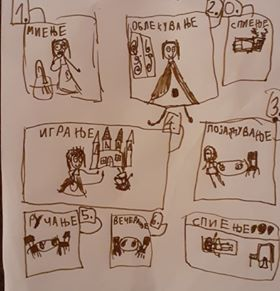 1.
МИЕЊЕ
ОБЛЕКУВАЊЕ
2.
0.
СПИЕЊЕ
4.
ИГРАЊЕ
3.
ПОЈАДУВАЊЕ
РУЧАЊЕ
5.
ВЕЧЕРАЊЕ
6.
СПИЕЊЕ